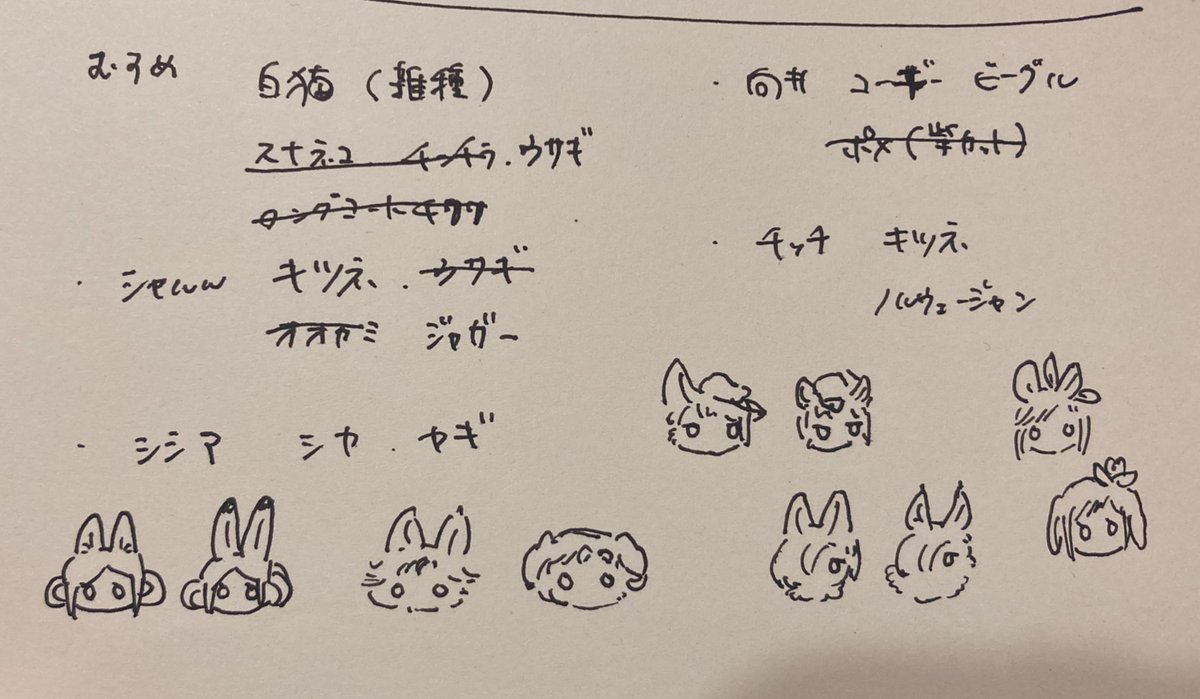 むすめ 白猫（雑種）
スナネコ チンチラ.ウサギ
ロングコートチワワ
・シャルル キツネ、.ウサギ
オオカミ ジャガー
・シシア シカ.ヤギ
・向井 コーギー ビーグル
ポメ（柴カット）
・チッチ キツネ、
ノルウェージャン